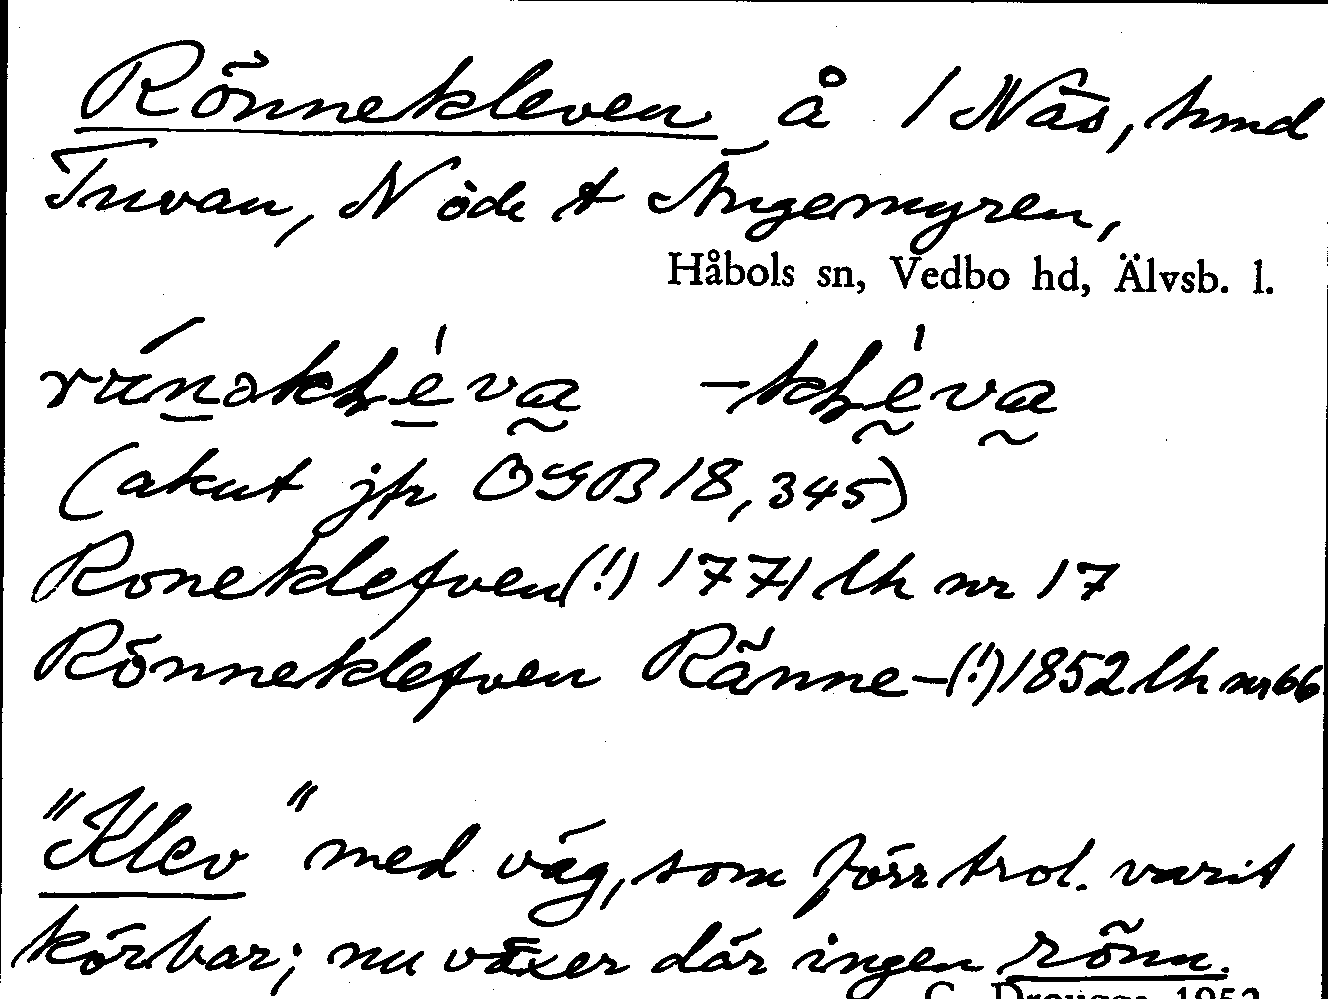 Rönnekleven å 1 Näs, hmd
Tuvan, N öde t Ängemyren,
Håbols sn, Vedbo hd, Älvsb. l.
(akut jfr OGB 18, 345)
Roneklefven (!) 1771 lh nr 17
Rönneklefven Ränne-(!) 1852 lh nr 66
"Klev" med väg, som förr trol. varit
körbar; nu växer där ingen rönn.